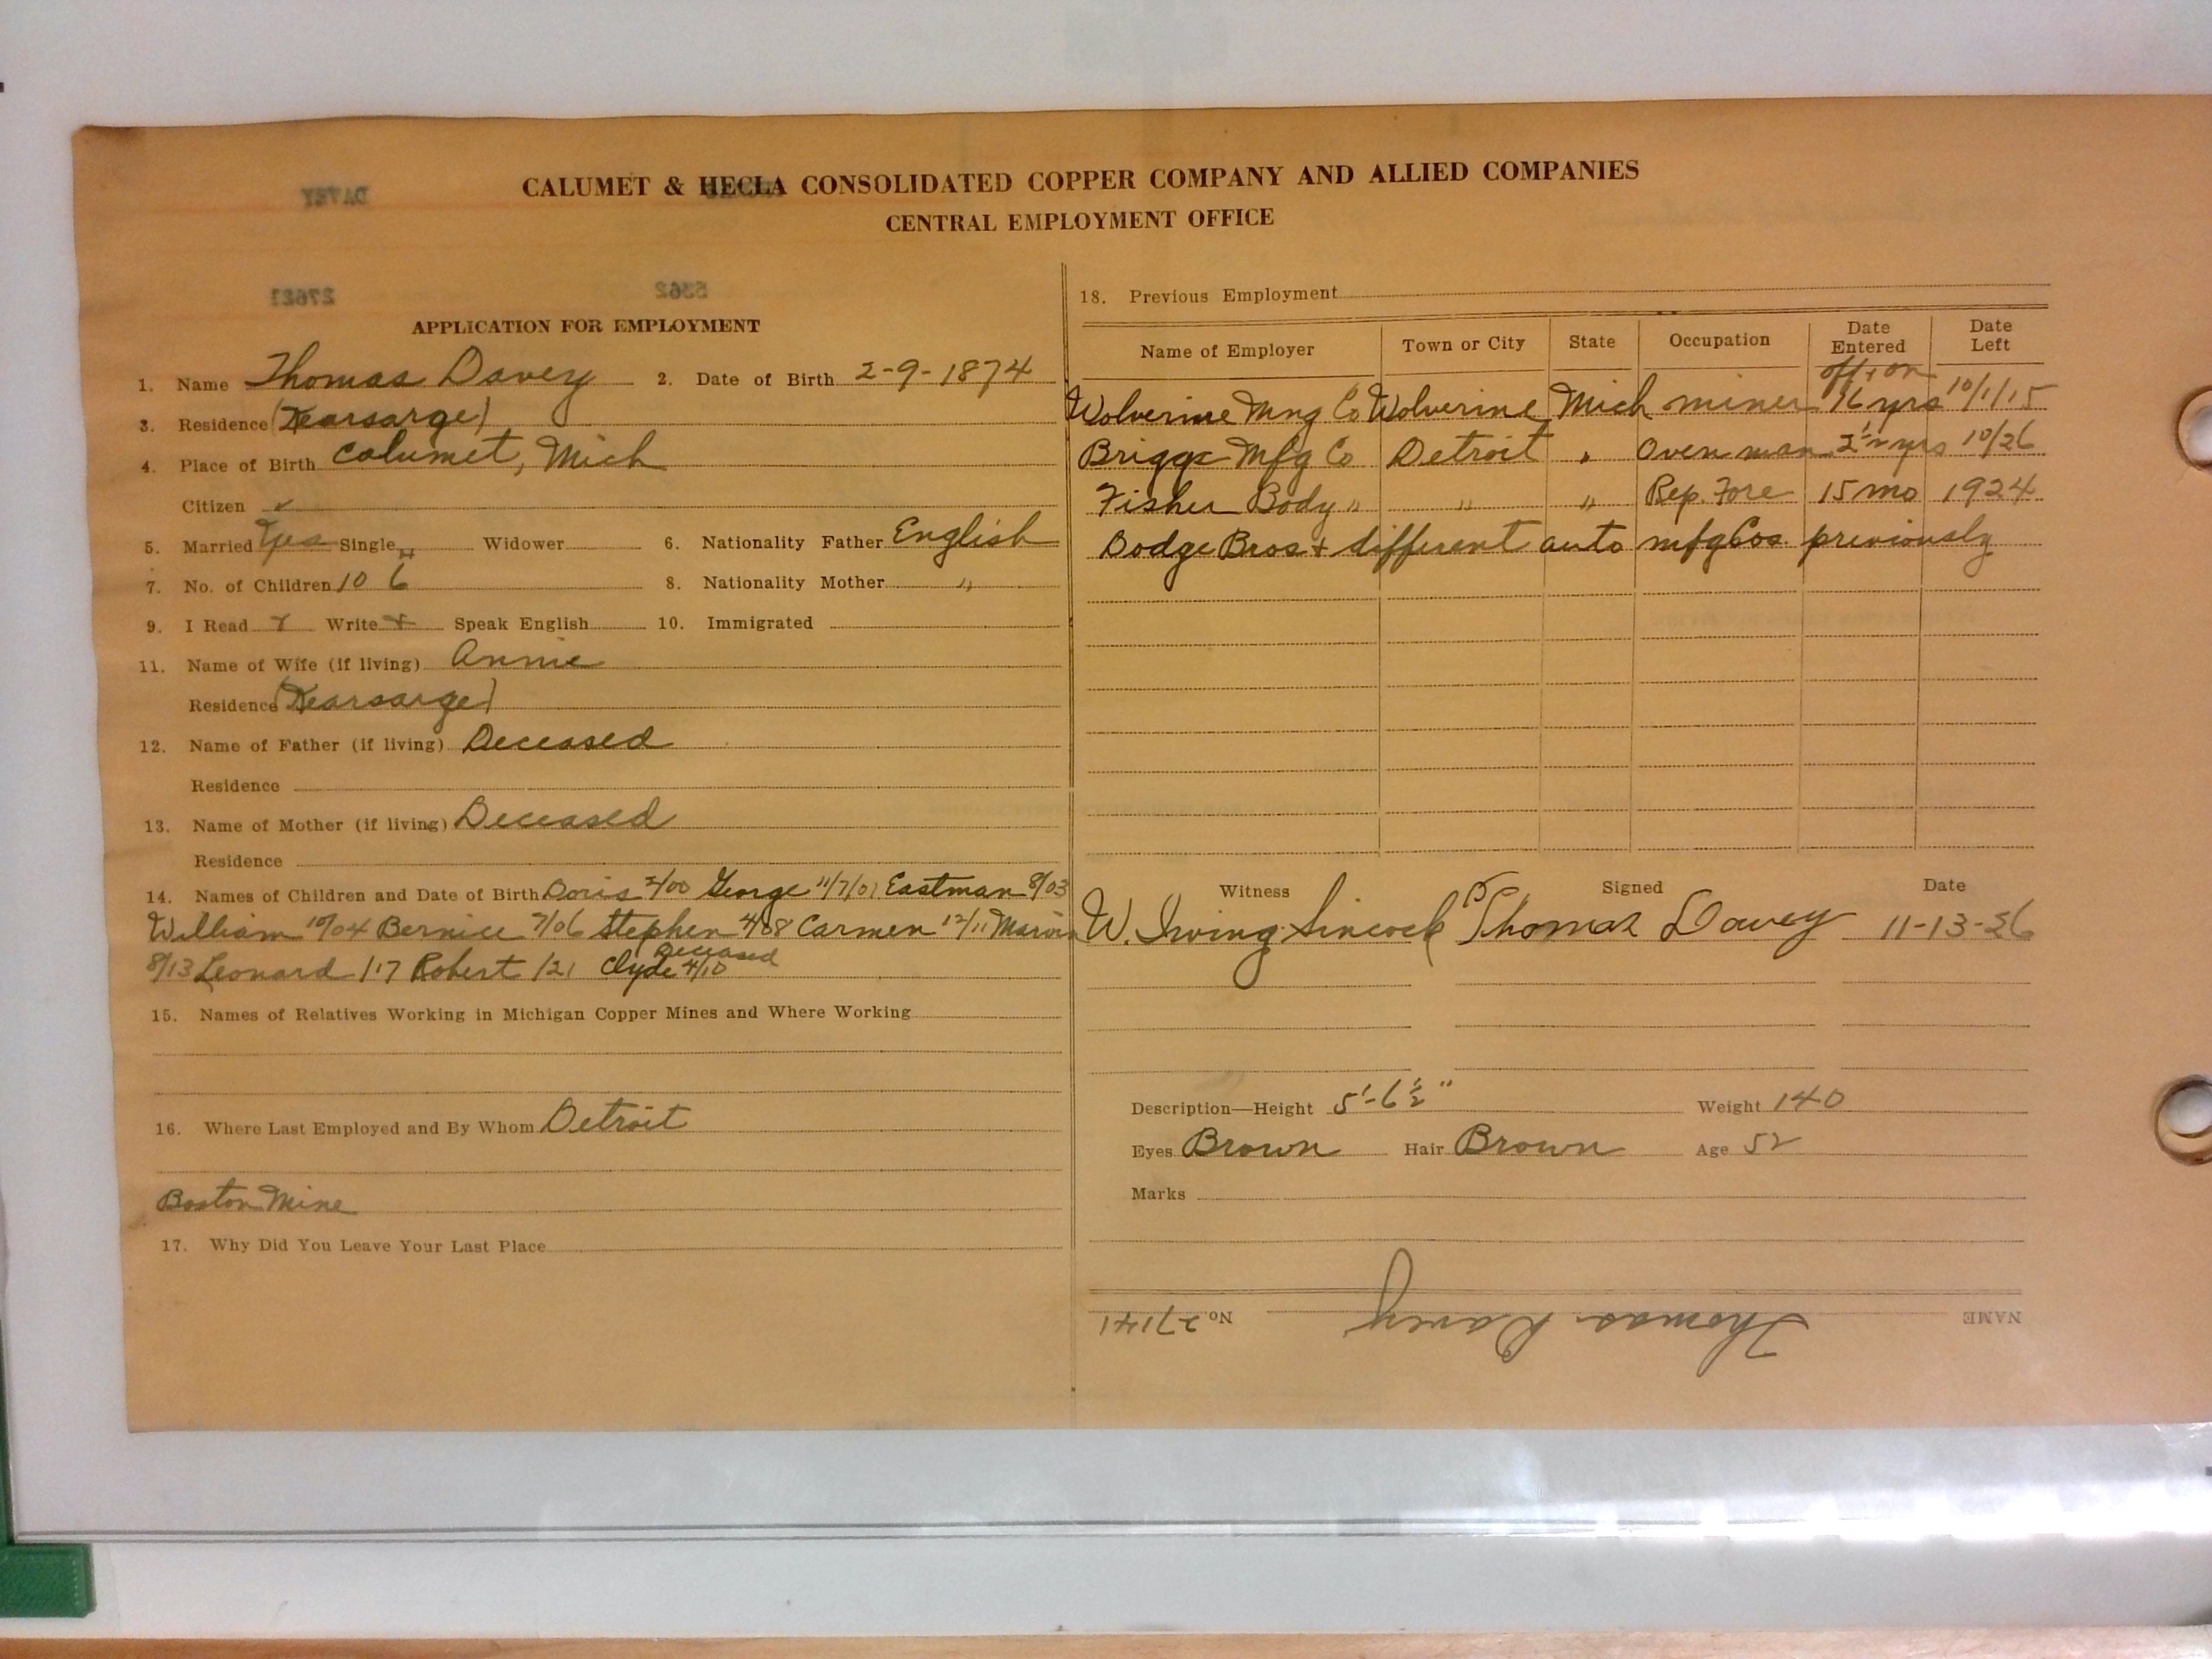 DAVEY
CALUMET & HECLA CONSOLIDATED COPPER COMPANY AND ALLIED COMPANIES
CENTRAL EMPLOYMENT OFFICE
27621 5362
APPLICATION FOR EMPLOYMENT
1. Name Thomas Davey 2. Date of Birth 2-9-1874
3. Residence (Kearsarge)
4. Place of Birth Calumet, Mich
Citizen ✓
5. Married Yes Single Widower 6. Nationality Father English
7. No. of Children 10 6 8. Nationality Mother "
9. I Read Write Speak English 10. Immigrated
11. Name of Wife (if living) Annie
Residence (Kearsarge)
12. Name of Father (if living) Deceased
Residence
13. Name of Mother (if living) Deceased
Residence
14. Names of Children and Date of Birth Doris 2/00 George 11/7/01 Eastman 8/03
William 10/04 Bernice 7/06 Stephen 4/08 Carmen 12/11 Marvin
8/13 Leonard /17 Robert /21 Clyde 4/10 Deceased
15. Names of Relatives Working in Michigan Copper Mines and Where Working
16. Where Last Employed and By Whom Detroit
Boston Mine
17. Why Did You Leave Your Last Place
18. Previous Employment
Name of Employer Town or City State Occupation Date Entered Date Left
off + on
Wolverine Mng Co Wolverine Mich miner 16 yrs 10/1/15
Briggs Mfg Co Detroit " Oven man 2½ yrs 10/26
Fisher Body " " " Rep. Fore 15 mo 1924
Dodge Bros + different auto mfg Cos previously
Witness Signed Date
W. Irving Sincock Thomas Davey 11-13-26
Description—Height 5'-6½" Weight 140
Eyes Brown Hair Brown Age 52
Marks
NAME Thomas Davey No 27141